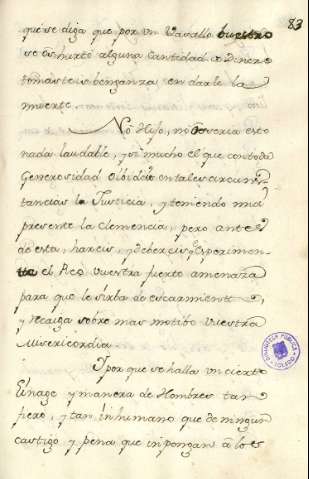 83
que se diga que por un Vasallo vuestro
se os hurtó alguna Cantidad de Dinero
tomasteis benganza en darle la
muerte.
No Hijo, no os seria esto
nada laudable, y si mucho el que con toda
Generosidad Olbidais en tales circuns
tancias la Justicia, y teniendo mui
presente la Clemencia, pero ante
de esta, hareis, y debereis q.e esperimen
te el Reo vuestra fuerte amenaza
para que le sirba de escarmiento
y recaiga sobre mas motibo vuestra
Misericordia.
Y por que se halla un cierto
Linage y manera de Hombres tan
fiero, y tan inhumano que de ningun
castigo y pena que impongan à los
BIBLIOTECA PUBLICA
TOLEDO